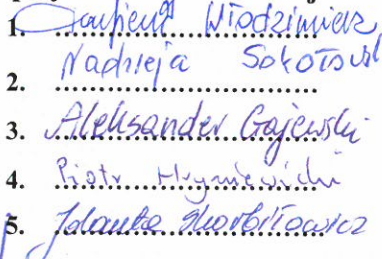 1. Włodzimierz
2. Nadzieja Sokołowsk
3. Aleksander Gajewski
4. Piotr Hryniewicki
5. Jolanta Skorbiłowicz